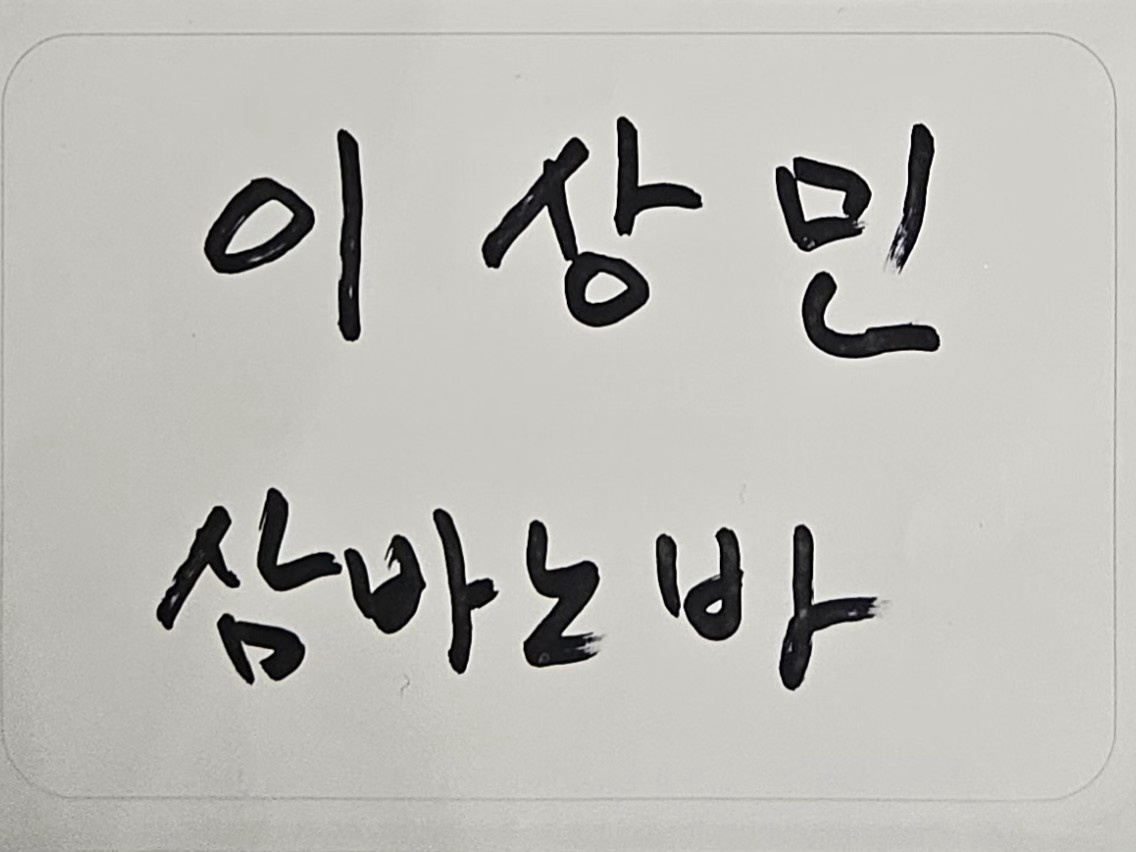 이상민
삼바노바